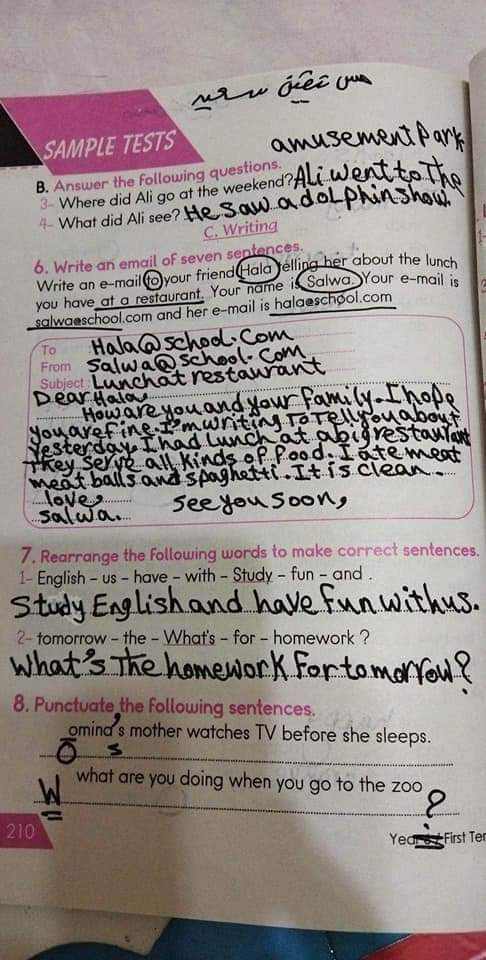 SAMPLE TESTS
amusement Park
B. Answer the following questions.
3- Where did Ali go at the weekend? Ali went to The
4- What did Ali see? He saw a dolphin show.
C. Writing
6. Write an email of seven sentences.
Write an e-mail to your friend Hala telling her about the lunch
you have at a restaurant. Your name is Salwa. Your e-mail is
salwa@school.com and her e-mail is hala@school.com
To Hala@school.com
From Salwa@school.com
Subject: Lunch at restaurant
Dear Hala,
How are you and your family. I hope
you are fine. I'm writing To Tell you about
yesterday. I had Lunch at a big restaurant
They serve all kinds of food. I ate meat
meat balls and spaghetti. It is clean.
love, see you soon,
salwa.
7. Rearrange the following words to make correct sentences.
1- English – us – have – with – Study – fun – and .
Study English and have fun with us.
2- tomorrow – the – What's – for – homework ?
What's The homework for tomorrow?
8. Punctuate the following sentences.
omina's mother watches TV before she sleeps.
O s
what are you doing when you go to the zoo
W ?
210
First Ter